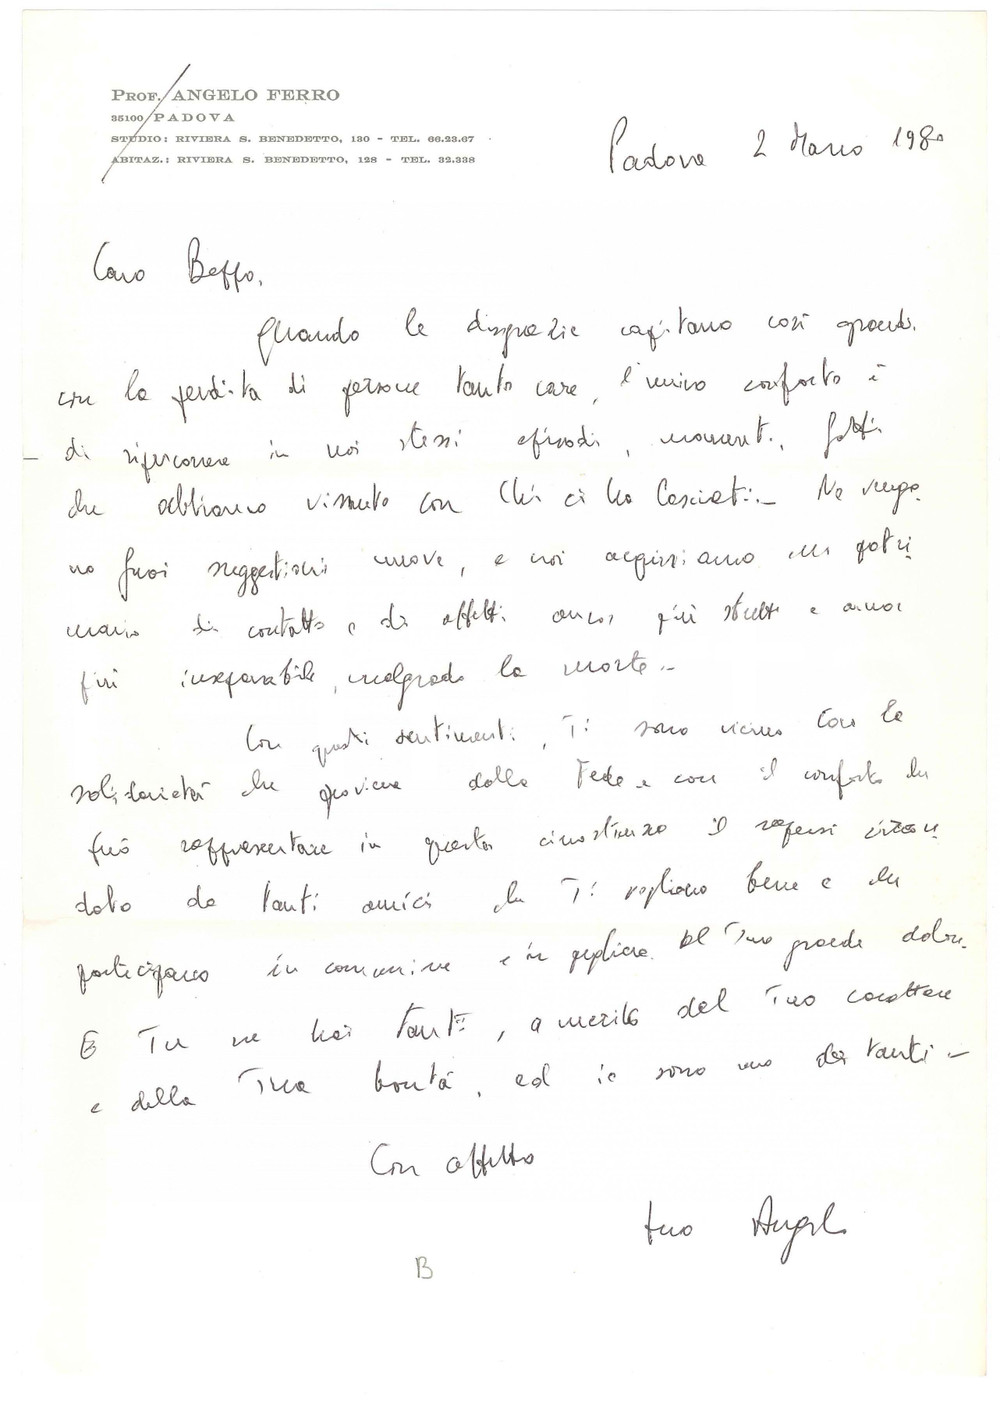 PROF. ANGELO FERRO
35100 PADOVA
STUDIO: RIVIERA S. BENEDETTO, 130 - TEL. 66.23.67
ABITAZ.: RIVIERA S. BENEDETTO, 128 - TEL. 32.338
Padova 2 Marzo 1980
Caro Beppo,
Quando le disgrazie capitano così grandi,
con la perdita di persone tanto care, l'unico conforto è
di ripercorrere in noi stessi episodi, momenti, fatti
che abbiamo vissuto con Chi ci ha lasciati. - Ne vengo
no fuori suggestioni nuove, e noi acquisiamo un patri
monio di contatto e di affetti ancor più stretto e ancor
più inseparabile, malgrado la morte. -
Con questi sentimenti, Ti sono vicino con la
solidarietà che proviene dalla Fede e con il conforto che
può rappresentare in questa circostanza il sapersi circon
dato da tanti amici che Ti vogliono bene e che
partecipano in comunione e in preghiera al Tuo grande dolore.
E Tu ne hai tanti, a merito del Tuo carattere
e della Tua bontà, ed io sono uno dei tanti -
Con affetto
tuo Angelo
B